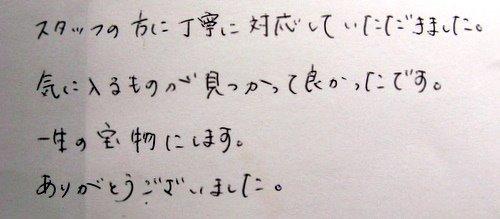 スタッフの方に丁寧に対応していただきました。
気に入るものが見つかって良かったです。
一生の宝物にします。
ありがとうございました。